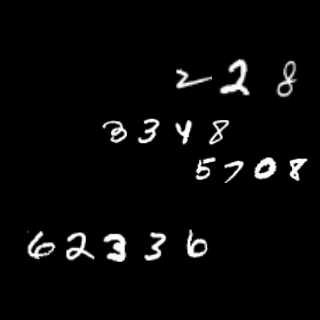 228
3348
5708
62336